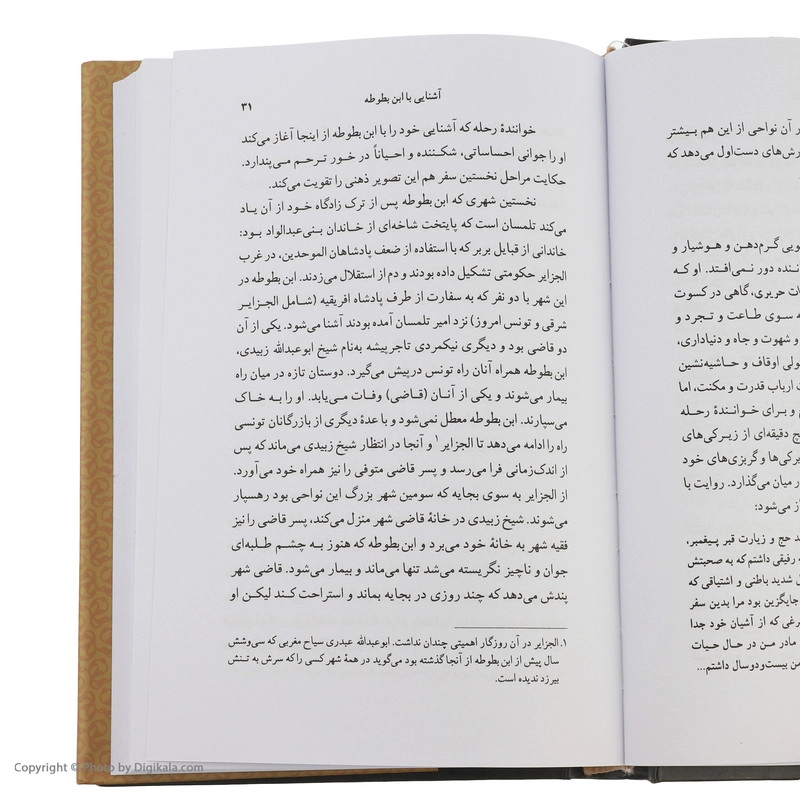 آشنایی با ابن بطوطه
۳۱
خوانندهٔ رحله که آشنایی خود را با ابن بطوطه از اینجا آغاز می‌کند
او را جوانی احساساتی، شکننده و احیاناً در خور ترحم می‌پندارد.
حکایت مراحل نخستین سفر هم این تصویر ذهنی را تقویت می‌کند.
نخستین شهری که ابن بطوطه پس از ترک زادگاه خود از آن یاد
می‌کند تلمسان است که پایتخت شاخه‌ای از خاندان بنی‌عبدالواد بود:
خاندانی از قبایل بربر که با استفاده از ضعف پادشاهان الموحدین، در غرب
الجزایر حکومتی تشکیل داده بودند و دم از استقلال می‌زدند. ابن بطوطه در
این شهر با دو نفر که به سفارت از طرف پادشاه افریقیه (شامل الجزایر
شرقی و تونس امروز) نزد امیر تلمسان آمده بودند آشنا می‌شود. یکی از آن
دو قاضی بود و دیگری نیکمردی تاجرپیشه به‌نام شیخ ابوعبدالله زبیدی،
ابن بطوطه همراه آنان راه تونس درپیش می‌گیرد. دوستان تازه در میان راه
بیمار می‌شوند و یکی از آنان (قاضی) وفات می‌یابد. او را به خاک
می‌سپارند. ابن بطوطه معطل نمی‌شود و با عدهٔ دیگری از بازرگانان تونسی
راه را ادامه می‌دهد تا الجزایر۱ و آنجا در انتظار شیخ زبیدی می‌ماند که پس
از اندک‌زمانی فرا می‌رسد و پسر قاضی متوفی را نیز همراه خود می‌آورد.
از الجزایر به سوی بجایه که سومین شهر بزرگ این نواحی بود رهسپار
می‌شوند. شیخ زبیدی در خانهٔ قاضی شهر منزل می‌کند، پسر قاضی را نیز
فقیه شهر به خانهٔ خود می‌برد و ابن بطوطه که هنوز به چشم طلبه‌ای
جوان و ناچیز نگریسته می‌شد تنها می‌ماند و بیمار می‌شود. قاضی شهر
پندش می‌دهد که چند روزی در بجایه بماند و استراحت کند لیکن او
۱. الجزایر در آن روزگار اهمیتی چندان نداشت. ابوعبدالله عبدری سیاح مغربی که سی‌وشش
سال پیش از ابن بطوطه از آنجا گذشته بود می‌گوید در همهٔ شهر کسی را که سرش به تنش
بیرزد ندیده است.
ر آن نواحی از این هم بیشتر
رش‌های دست‌اول می‌دهد که
ویی گرم‌دهن و هوشیار و
ننده دور نمی‌افتد. او که
ات حریری، گاهی در کسوت
ه سوی طاعت و تجرد و
و شهوت و جاه و دنیاداری،
ولی اوقاف و حاشیه‌نشین
ت ارباب قدرت و مکنت، اما
م و برای خوانندهٔ رحله
ج دقیقه‌ای از زیرکی‌های
یرکی‌ها و گربزی‌های خود
ر میان می‌گذارد. روایت با
از می‌شود:
د حج و زیارت قبر پیغمبر،
ه رفیقی داشتم که به صحبتش
ل شدید باطنی و اشتیاقی که
جایگزین بود مرا بدین سفر
رغی که از آشیان خود جدا
مادر من در حال حیات
من بیست‌ودو سال داشتم...
Copyright © Photo by Digikala.com